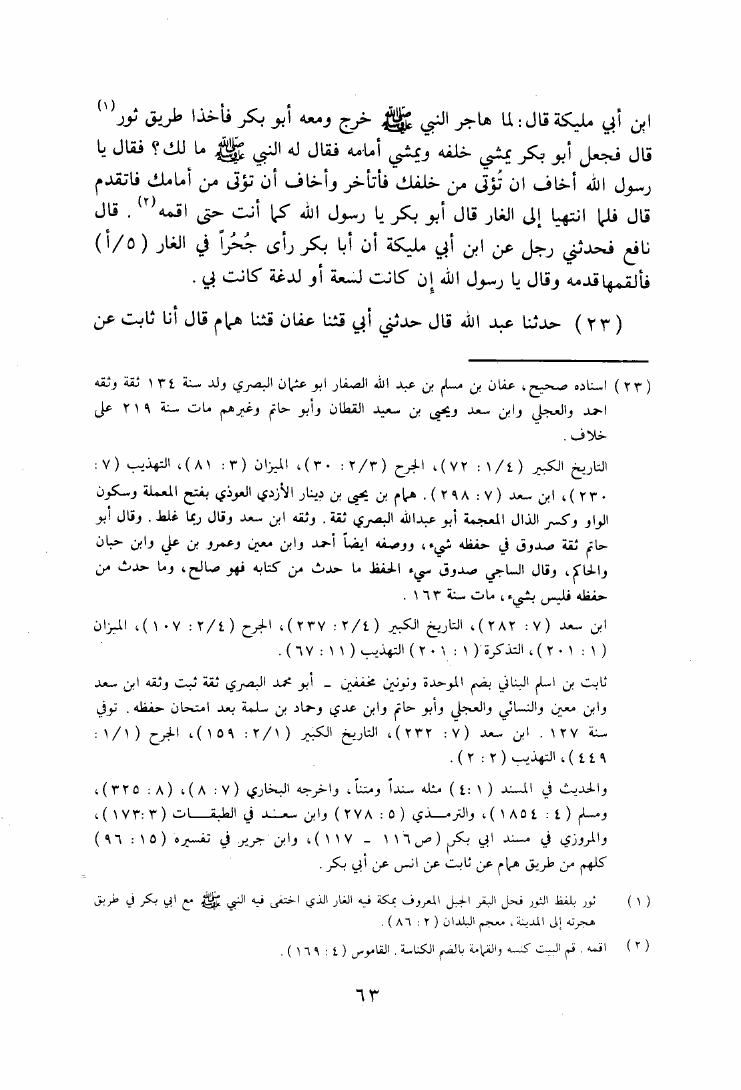 ابن أبي مليكة قال: لما هاجر النبي ﷺ خرج ومعه أبو بكر فأخذا طريق ثور(١)
قال فجعل أبو بكر يمشي خلفه ويمشي أمامه فقال له النبي ﷺ ما لك؟ فقال يا
رسول الله أخاف ان تُؤتى من خلفك فأتأخر وأخاف أن تؤتى من أمامك فاتقدم
قال فلما انتهيا إلى الغار قال أبو بكر يا رسول الله كما أنت حتى اقمه(٢). قال
نافع فحدثني رجل عن ابن أبي مليكة أن أبا بكر رأى جُحُراً في الغار (٥/أ)
فألقمها قدمه وقال يا رسول الله إن كانت لسعة أو لدغة كانت بي.
(٢٣) حدثنا عبد الله قال حدثني أبي قثنا عفان قثنا همام قال أنا ثابت عن
(٢٣) اسناده صحيح، عفان بن مسلم بن عبد الله الصفار ابو عثمان البصري ولد سنة ١٣٤ ثقة وثقه
احمد والعجلي وابن سعد ويحيى بن سعيد القطان وأبو حاتم وغيرهم مات سنة ٢١٩ على
خلاف.
التاريخ الكبير (١/٤: ٧٢)، الجرح (٢/٣: ٣٠)، الميزان (٣: ٨١)، التهذيب (٧:
٢٣٠)، ابن سعد (٧: ٢٩٨). همام بن يحيى بن دينار الأزدي العوذي بفتح المعملة وسكون
الواو وكسر الذال المعجمة أبو عبدالله البصري ثقة. وثقه ابن سعد وقال ربما غلط. وقال أبو
حاتم ثقة صدوق في حفظه شيء، ووصفه ايضاً أحمد وابن معين وعمرو بن علي وابن حبان
والحاكم، وقال الساجي صدوق سيء الحفظ ما حدث من كتابه فهو صالح، وما حدث من
حفظه فليس بشيء، مات سنة ١٦٣.
ابن سعد (٧: ٢٨٢)، التاريخ الكبير (٢/٤: ٢٣٧)، الجرح (٢/٤: ١٠٧)، الميزان
(١: ٢٠١)، التذكرة (١: ٢٠١) التهذيب (١١: ٦٧).
ثابت بن اسلم البناني بضم الموحدة ونونين مخففين - أبو محمد البصري ثقة ثبت وثقه ابن سعد
وابن معين والنسائي والعجلي وأبو حاتم وابن عدي وحماد بن سلمة بعد امتحان حفظه. توفي
سنة ١٢٧. ابن سعد (٧: ٢٣٢)، التاريخ الكبير (٢/١: ١٥٩)، الجرح (١/١:
٤٤٩)، التهذيب (٢: ٢).
والحديث في المسند (١: ٤) مثله سنداً ومتناً، واخرجه البخاري (٧: ٨)، (٨: ٣٢٥)،
ومسلم (٤: ١٨٥٤)، والترمذي (٥: ٢٧٨) وابن سعد في الطبقات (٣: ١٧٣)،
والمروزي في مسند ابي بكر (ص ١١٦ - ١١٧)، وابن جرير في تفسيره (١٥: ٩٦)
كلهم من طريق همام عن ثابت عن انس عن أبي بكر.
(١) ثور بلفظ الثور فحل البقر الجبل المعروف بمكة فيه الغار الذي اختفى فيه النبي ﷺ مع ابي بكر في طريق
هجرته إلى المدينة، معجم البلدان (٢: ٨٦).
(٢) اقمه. قم البيت كنسه والقمامة بالضم الكناسة. القاموس (٤: ١٦٩).
٦٣